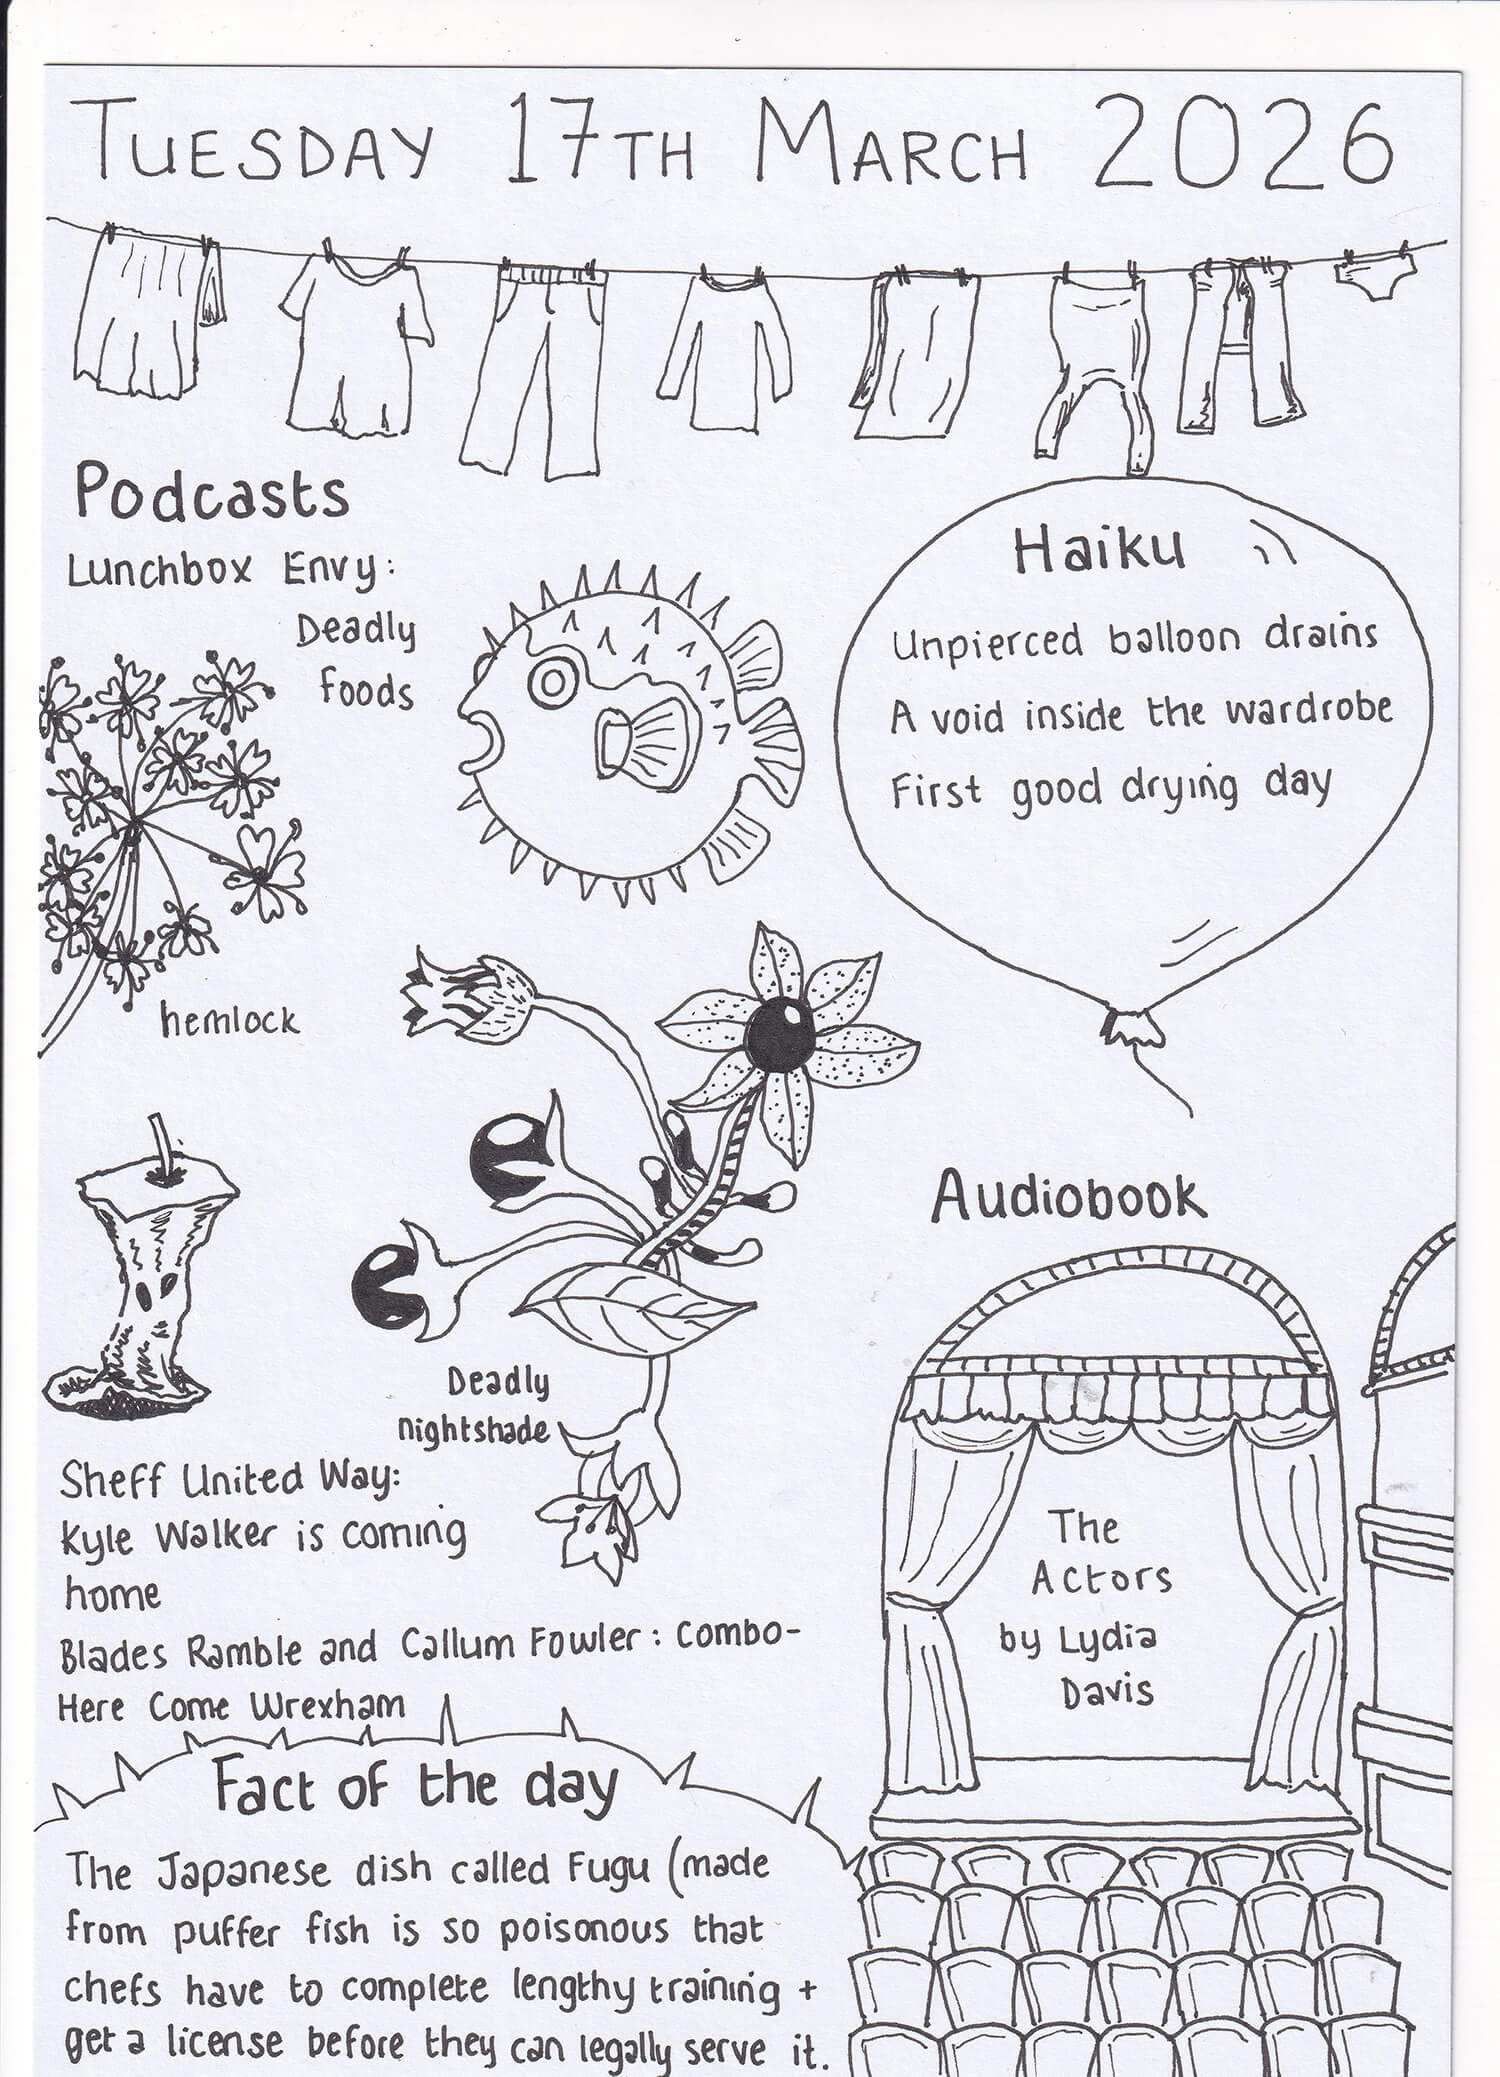 TUESDAY 17TH MARCH 2026
Podcasts
Lunchbox Envy:
Deadly
foods
hemlock
Deadly
nightshade
Sheff United Way:
Kyle Walker is coming
home
Blades Ramble and Callum Fowler: Combo-
Here Come Wrexham
Haiku
Unpierced balloon drains
A void inside the wardrobe
First good drying day
Audiobook
The
Actors
by Lydia
Davis
Fact of the day
The Japanese dish called Fugu (made
from puffer fish is so poisonous that
chefs have to complete lengthy training +
get a license before they can legally serve it.